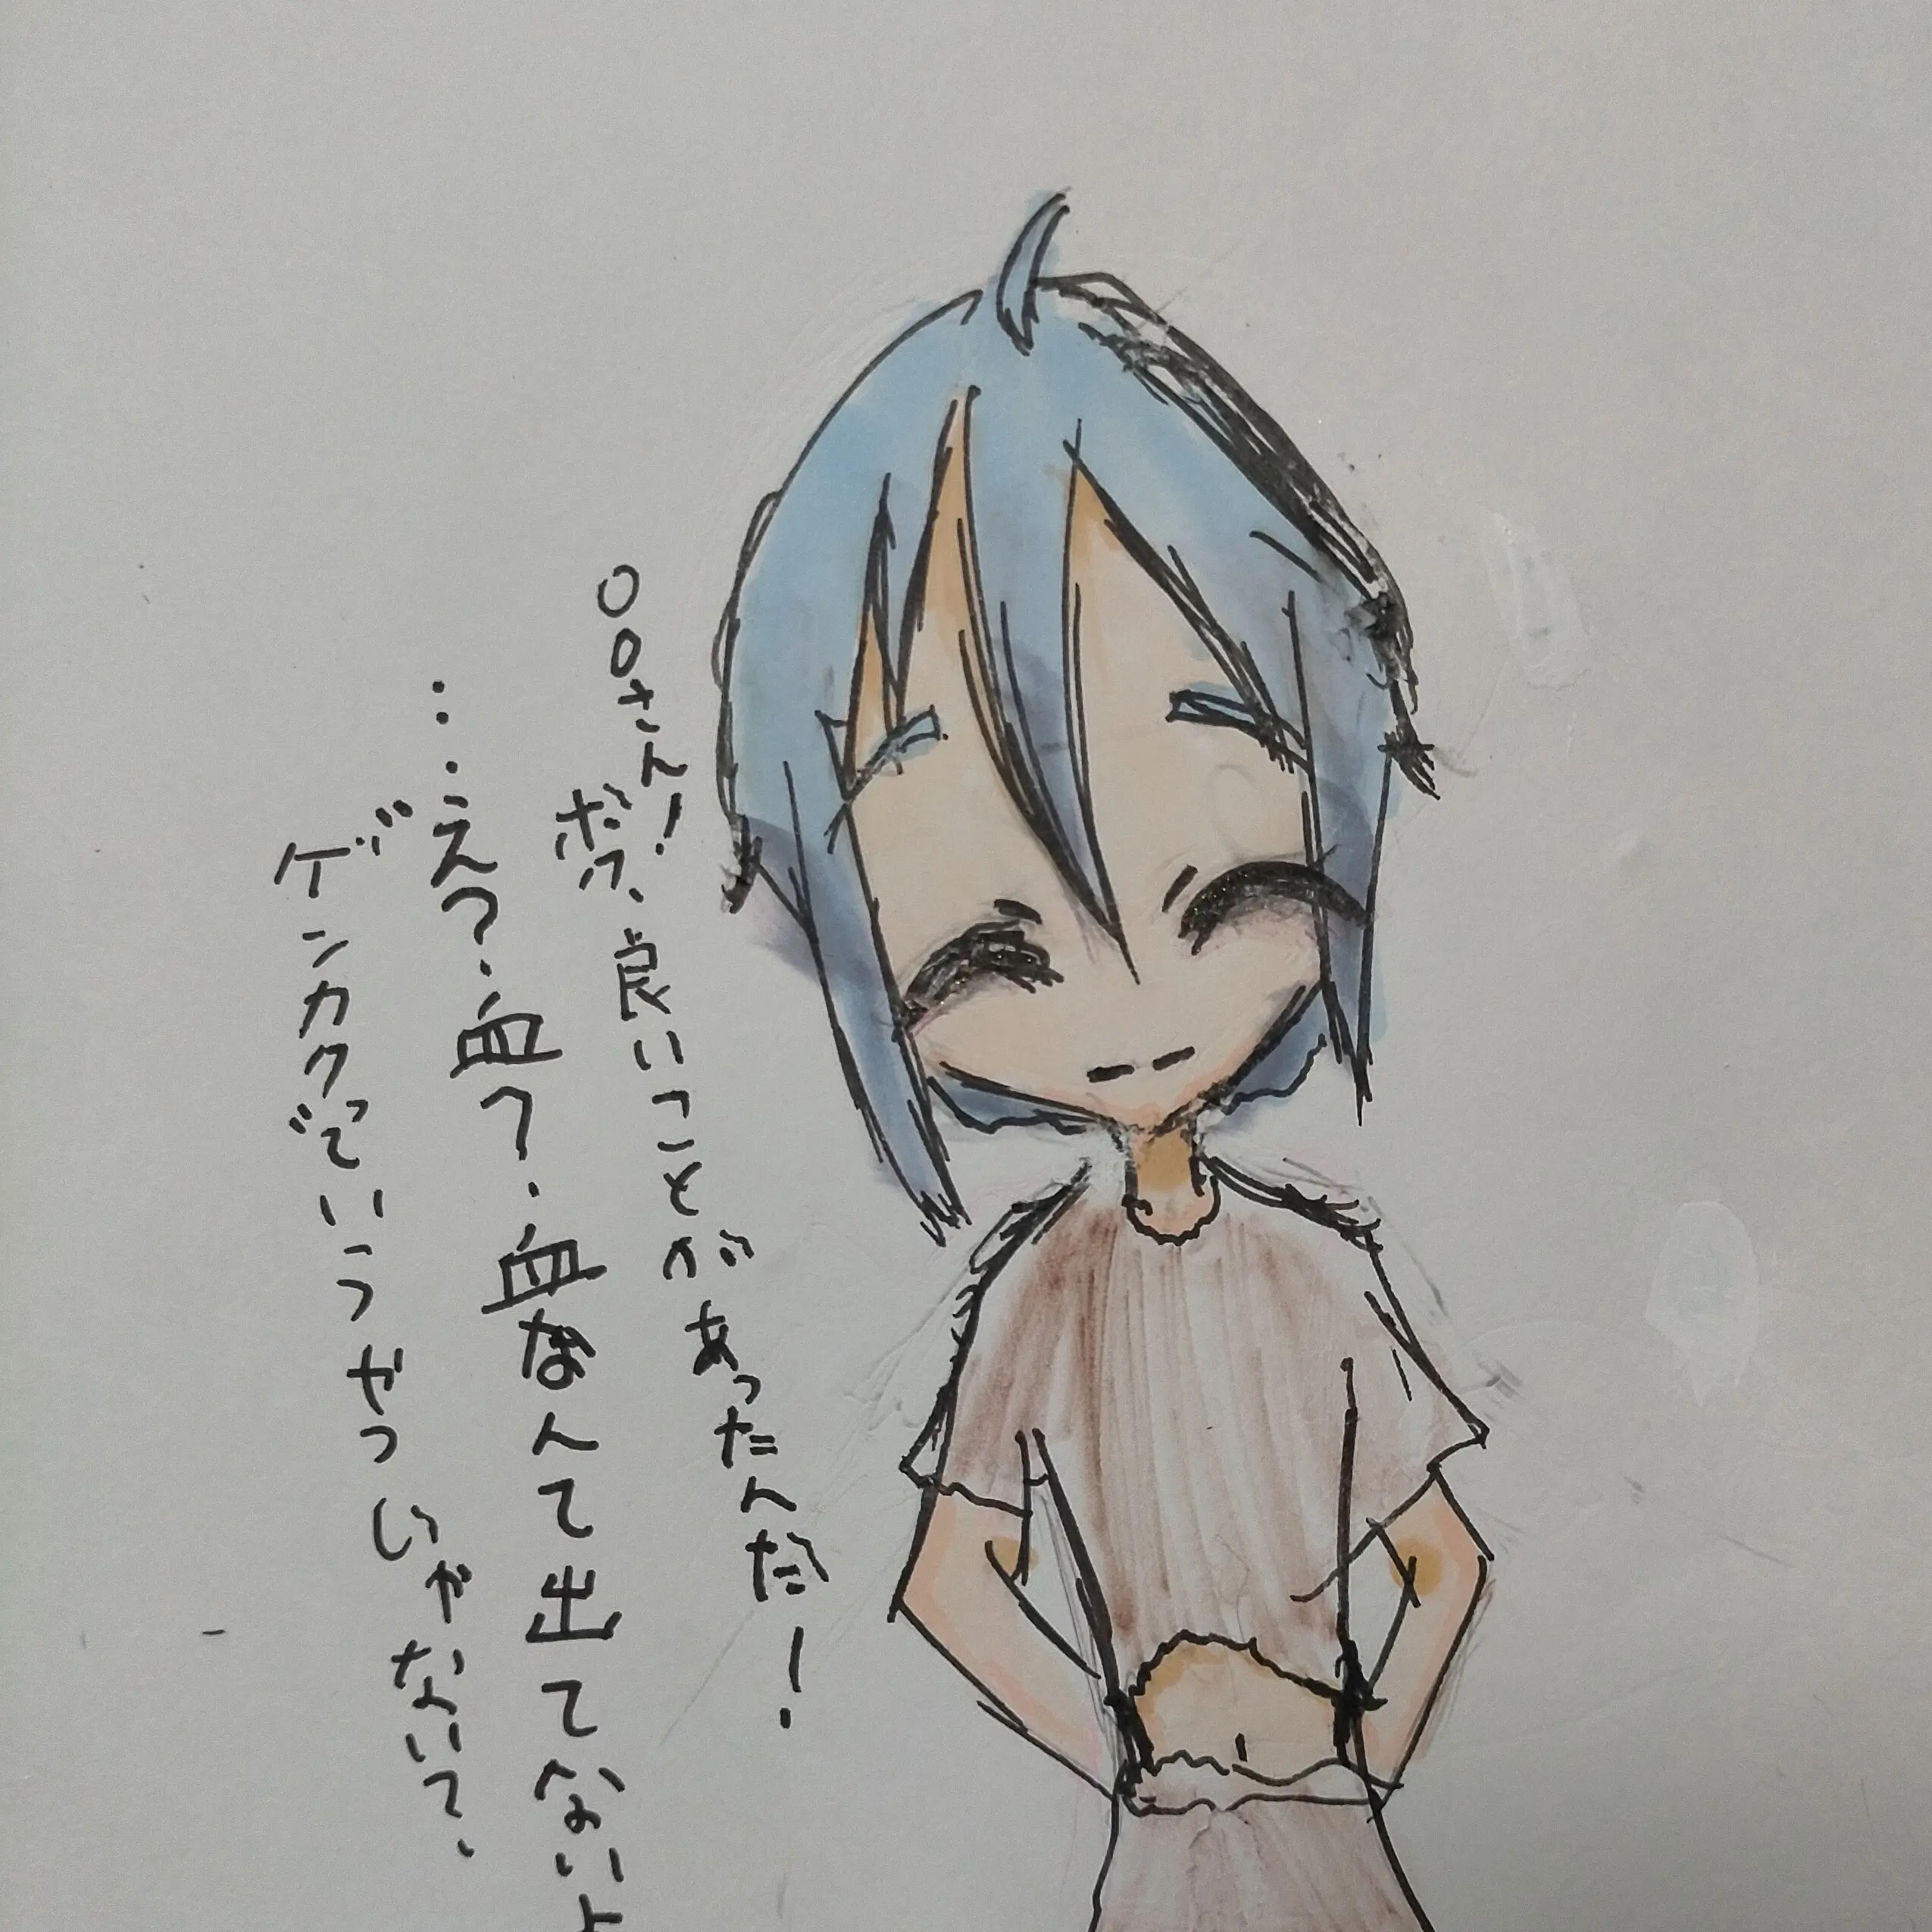 ○○さん!
ボク、良いことがあったんだ!
…え?血?血なんて出てないよ
ゲンカクっていうやつじゃない?